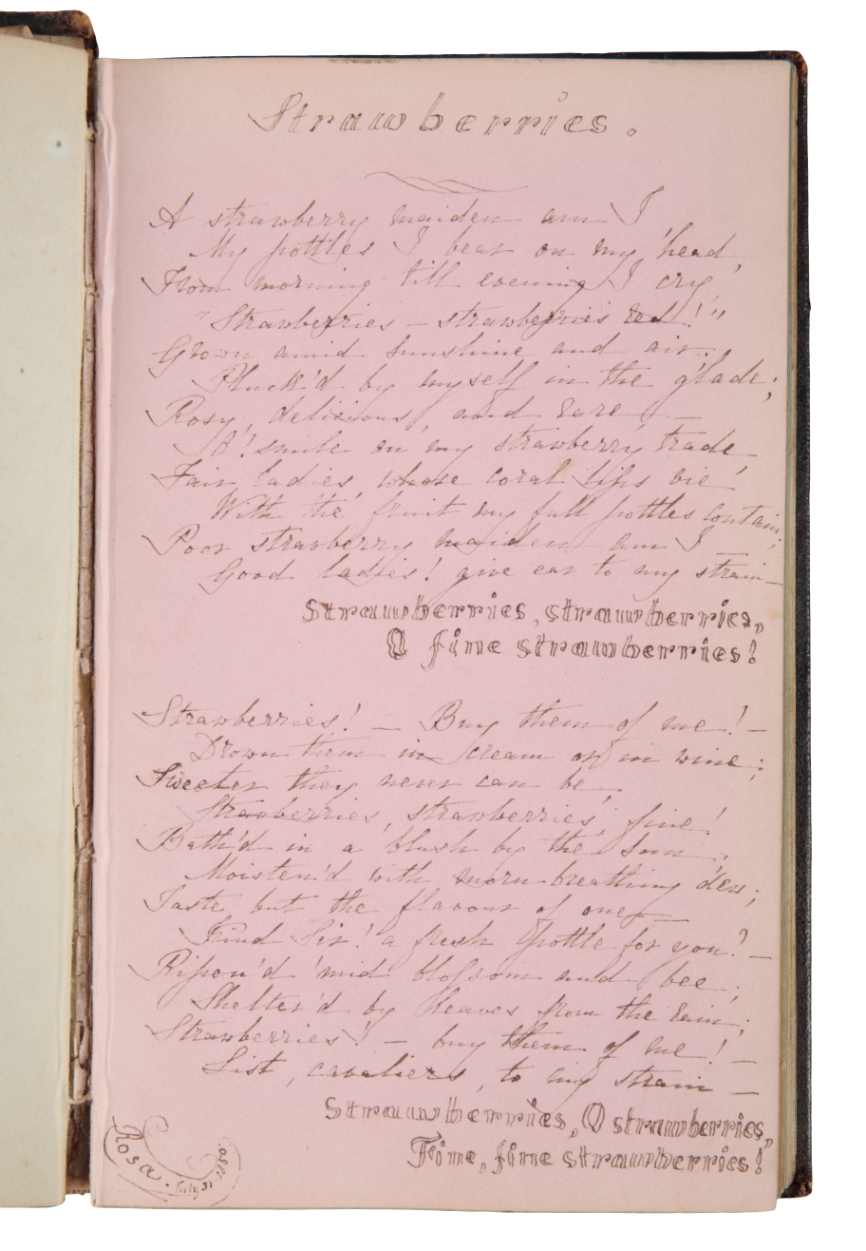 Strawberries.
A strawberry maiden am I
My pottles I bear on my head,
From morning till evening I cry,
"Strawberries – strawberries red!"
Grown amid sunshine and air.
Pluck'd by myself in the glade;
Rosy, delicious, and rare, –
O! smile on my strawberry trade,
Fair ladies whose coral lips vie
With the fruit my full pottles contain,
Poor strawberry maiden am I –
Good ladies! give ear to my strain –
Strawberries, strawberries,
O fine strawberries!
Strawberries! – Buy them of me! –
Drown them in cream or in wine;
Sweeter they never can be,
Strawberries, strawberries, fine!
Bath'd in a blush by the sun,
Moisten'd with morn-breathing dew;
Taste but the flavour of one, –
Kind Sir! a fresh pottle for you? –
Ripen'd 'mid blossom and bee,
Shelter'd by leaves from the rain;
Strawberries! – buy them of me! –
List, cavaliers, to my strain –
Strawberries, O strawberries,
Fine, fine strawberries!
Rosa. July 31. 1850.